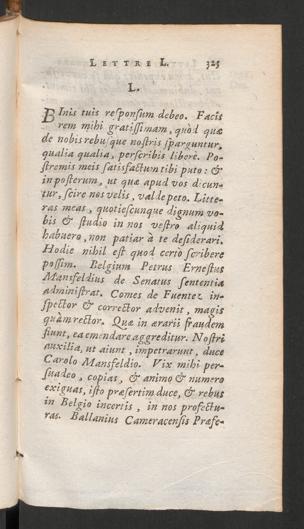 LETTRE L. 325
L.
BInis tuis responsum debeo. Facis
rem mihi gratissimam, quòd quæ
de nobis rebusque nostris sparguntur,
qualia qualia, perscribis liberè. Po-
stremis meis satisfactum tibi puto: &
in posterum, ut quæ apud vos dicun-
tur, scire nos velis, valde peto. Litte-
ras meas, quotiescunque dignum vo-
bis & studio in nos vestro aliquid
habuero, non patiar à te desiderari.
Hodie nihil est quod certò scribere
possim. Belgium Petrus Ernestus
Mansfeldius de Senatus sententia
administrat. Comes de Fuentez in-
spector & corrector advenit, magis
quàm rector. Quæ in ærarii fraudem
fiunt, ea emendare aggreditur. Nostri
auxilia, ut aiunt, impetrarunt, duce
Carolo Mansfeldio. Vix mihi per-
suadeo, copias, & animo & numero
exiguas, isto præsertim duce, & rebus
in Belgio incertis, in nos profectu-
ras. Ballanius Cameracensis Præfe-